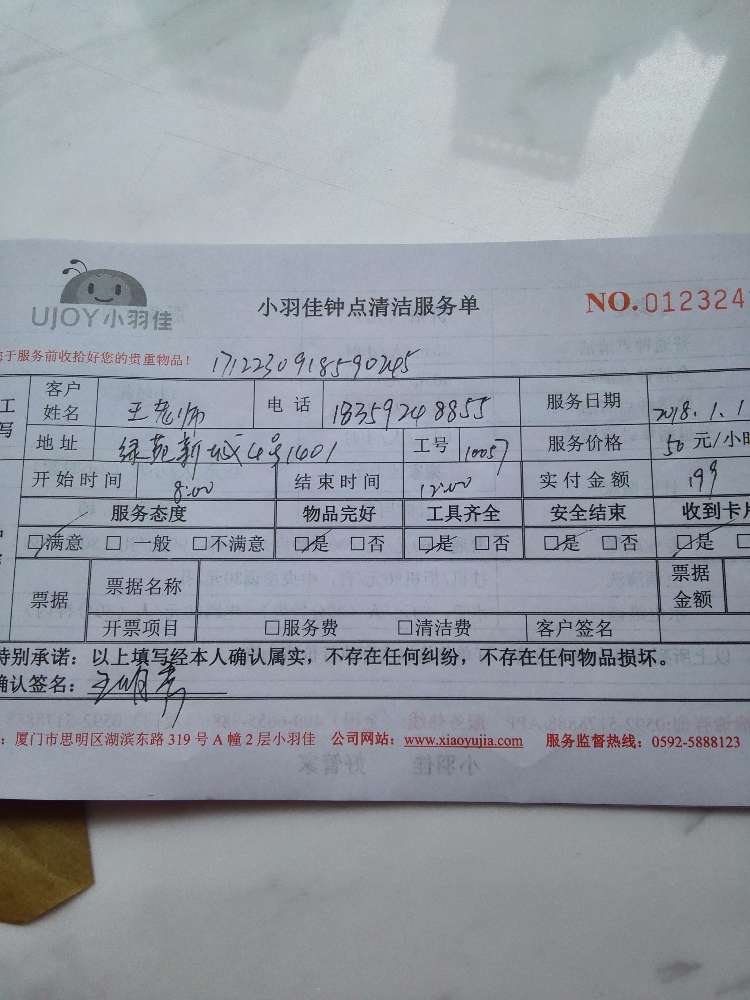 UJOY小羽佳
小羽佳钟点清洁服务单
NO. 012324
于服务前收拾好您的贵重物品！ 1712230918590245
工 客户姓名 王老师 电话 18359248855 服务日期 2018.1.1
写 地址 绿苑新城4号1401 工号 10057 服务价格 50元/小
开始时间 8:00 结束时间 12:00 实付金额 199
服务态度 物品完好 工具齐全 安全结束 收到卡片
□满意 □一般 □不满意 □是 □否 □是 □否 □是 □否 □是 □
票据 票据名称 票据金额
开票项目 □服务费 □清洁费 客户签名
特别承诺：以上填写经本人确认属实，不存在任何纠纷，不存在任何物品损坏。
确认签名：
：厦门市思明区湖滨东路 319 号 A 幢 2 层小羽佳 公司网站：www.xiaoyujia.com 服务监督热线：0592-5888123